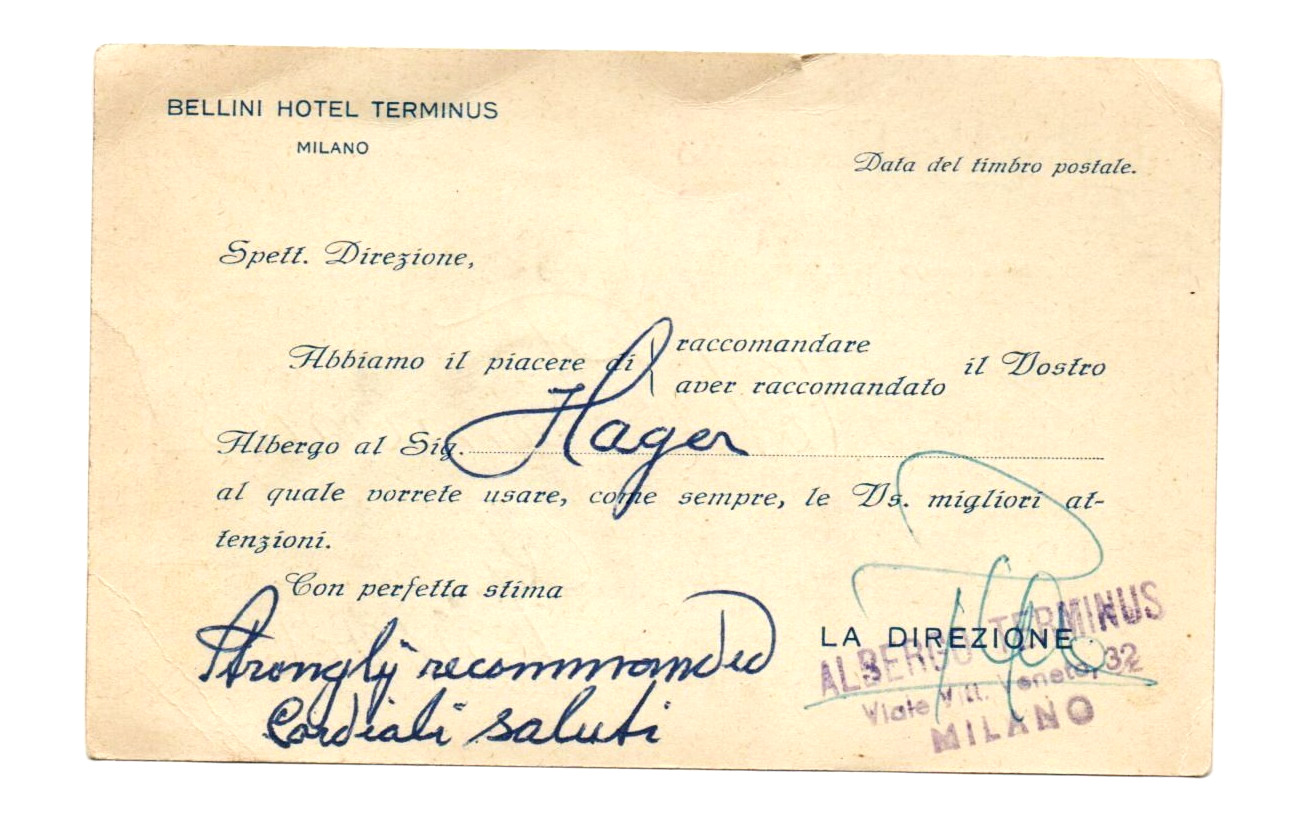 BELLINI HOTEL TERMINUS
MILANO
Data del timbro postale.
Spett. Direzione,
Abbiamo il piacere di raccomandare
aver raccomandato il Vostro
Albergo al Sig. Hager
al quale vorrete usare, come sempre, le Vs. migliori at-
tenzioni.
Con perfetta stima
Strongly recommanded
Cordiali saluti
LA DIREZIONE
ALBERGO TERMINUS
Viale Vitt. Veneto, 32
MILANO